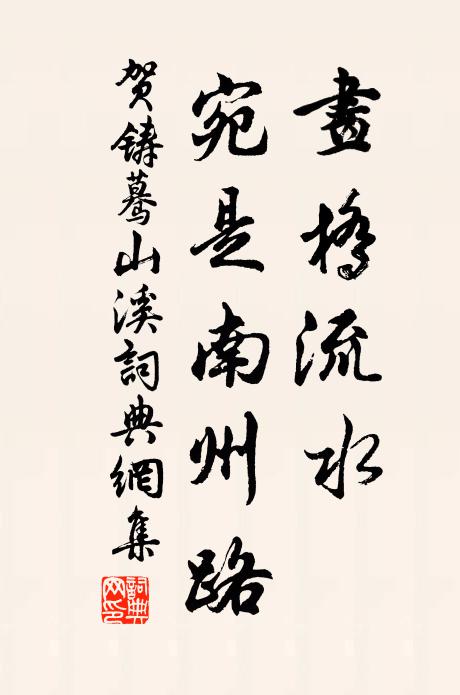 畫橋流水
宛是南州路
贺鑄蓦山溪詞典網集
詞典网印